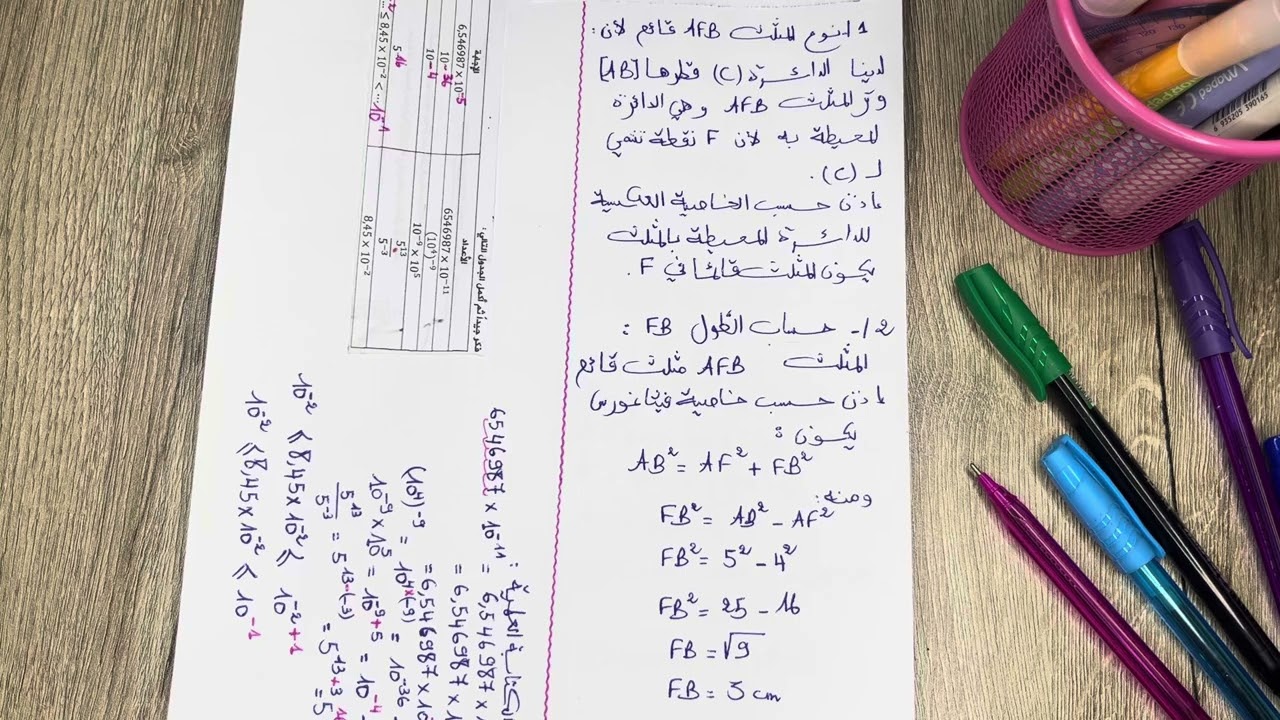 1/- نوع المثلث AFB قائم لأن :
لدينا الدائرة (C) قطرها [AB]
وتر المثلث AFB وهي الدائرة
المحيطة به لأن F نقطة تنتمي
لـ (C).
إذن حسب الخاصية العكسية
للدائرة المحيطة بالمثلث
يكون المثلث قائما في F.
2/- حساب الطول FB :
المثلث AFB مثلث قائم
إذن حسب خاصية فيثاغورس
يكون :
AB² = AF² + FB²
ومنه:
FB² = AB² - AF²
FB² = 5² - 4²
FB² = 25 - 16
FB = √9
FB = 3 cm
فكر جيدا ثم أكمل الجدول التالي :
الأعداد
الإجابة
6546987 × 10⁻¹¹
6,546987 × 10⁻⁵
(10⁴)⁻⁹
10⁻³⁶
10⁻⁹ × 10⁵
10⁻⁴
5¹³/5⁻³
5¹⁶
8,45 × 10⁻²
≤ 8,45 × 10⁻² <
الكتابة العلمية :
6546987 × 10⁻¹¹ = 6,546987 ×
= 6,546987 ×
= 6,546987 × 10
(10⁴)⁻⁹ = 10⁴ˣ⁽⁻⁹⁾ = 10⁻³⁶
10⁻⁹ × 10⁵ = 10⁻⁹⁺⁵ = 10⁻⁴
5¹³/5⁻³ = 5¹³⁻⁽⁻³⁾ = 5¹³⁺³ = 5
10⁻² ≤ 8,45 × 10⁻² ≤ 10⁻²⁺¹
10⁻² ≤ 8,45 × 10⁻² ≤ 10⁻¹
Maped